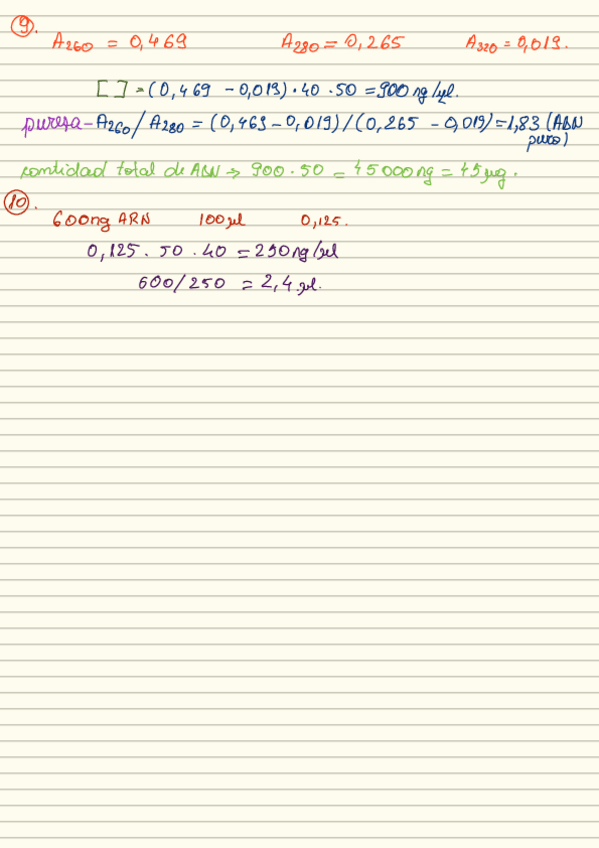 9.
A260 = 0,469 A280 = 0,265 A320 = 0,019.
[ ] = (0,469 - 0,019) · 40 · 50 = 900 ng/μl.
pureza - A260 / A280 = (0,469 - 0,019) / (0,265 - 0,019) = 1,83 (ADN
puro)
cantidad total de ADN → 900 · 50 = 45000 ng = 45 μg.
10.
600 ng ARN 100 μl 0,125.
0,125 · 50 · 40 = 250 ng/μl
600/250 = 2,4 μl.